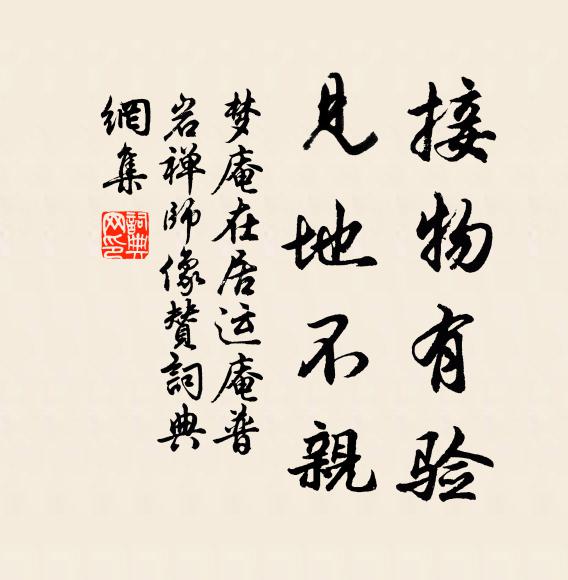 接物有验
见地不親
梦庵在居运庵普
岩禅師像贊詞典
網集
詞典网印